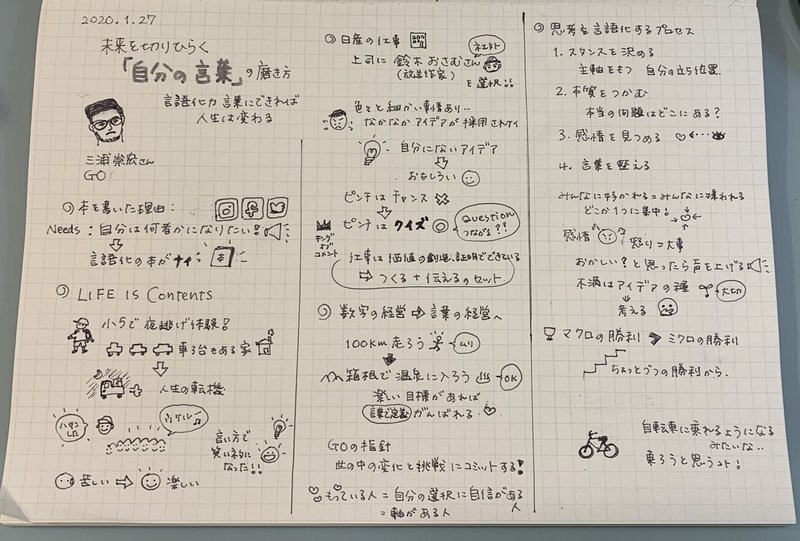 2020.1.27
未来を切りひらく
「自分の言葉」の磨き方
言語化力 言葉にできれば
人生は変わる
三浦崇宏さん
GO
本を書いた理由:
Needs:自分は何者かになりたい!
言語化の本がナイっ
本
LIFE is Contents
小5で夜逃げ体験!
車3台もある家
人生の転機
ハサンした
ウケルー♪
言い方で
笑いネタに
なった!!
苦しい ⇨ 楽しい
日産の仕事
上司に 鈴木おさむさん
(放送作家)
を選択!!
色々と細かい事情あり…
なかなかアイデアが採用されナイ
自分にないアイデア
おもしろい
ピンチはチャンス
ピンチはクイズ ◎
QUESTION
つながる??
キング
オブ
コメント
仕事は価値の創造と証明でできている
⇨ つくる+伝えるのセット
数字の経営 ⇨ 言葉の経営へ
100km走ろう
ムリ
箱根で温泉に入ろう
OK
楽しい目標があれば
言葉で定義 がんばれる
GOの指針
世の中の変化と挑戦にコミットする!
もっている人=自分の選択に自信がある人
=軸がある人
思考を言語化するプロセス
1. スタンスを決める
主軸をもつ 自分の立ち位置
2. 本質をつかむ
本当の問題はどこにある?
3. 感情を見つめる
4. 言葉を整える
みんなに好かれる=みんなに嫌われる
どこか1つに集中!
感情 怒り=大事
おかしい?と思ったら声を上げる
不満はアイデアの種
大切
考える
マクロの勝利 > ミクロの勝利
ちょっとづつの勝利から。
自転車に乗れるようになる
みたいな..
乗ろうと思うコト!